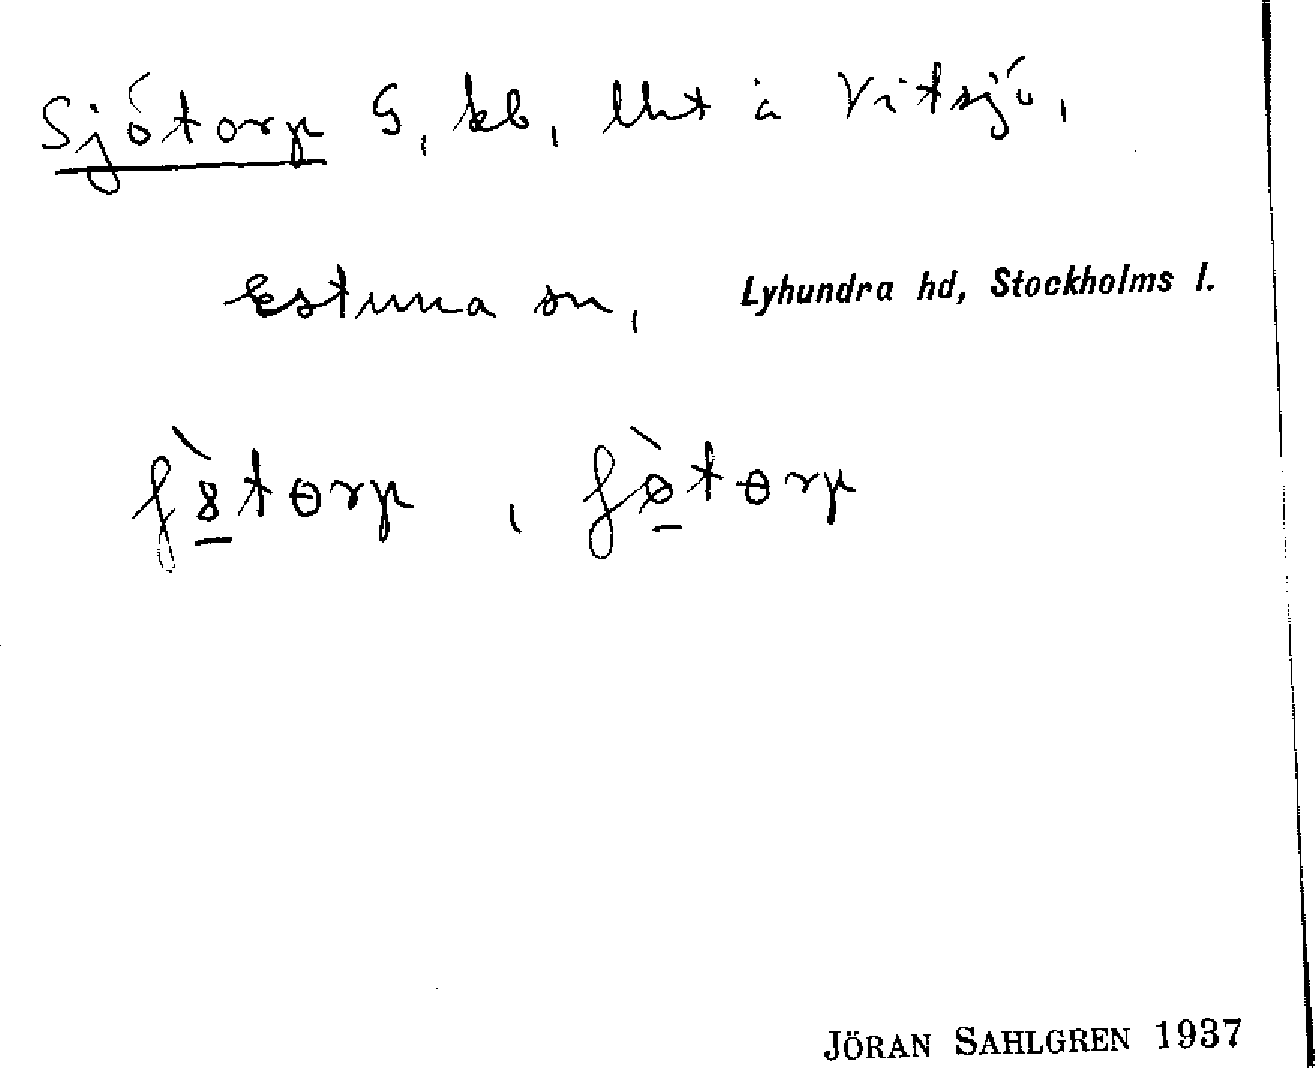 Sjötorp G, kb, lht å Vitsjö,
Estuna sn, Lyhundra hd, Stockholms l.
JÖRAN SAHLGREN 1937